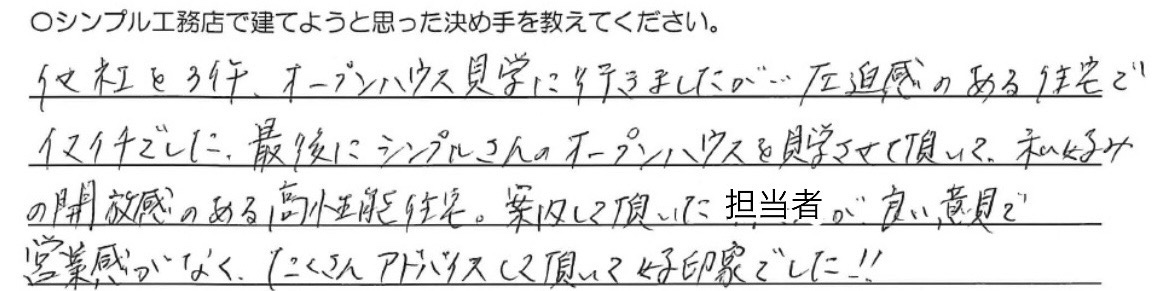 ○シンプル工務店で建てようと思った決め手を教えてください。
他社を3件、オープンハウス見学に行きましたが… 圧迫感のある住宅で
イマイチでした。最後にシンプルさんのオープンハウスを見学させて頂いて、私好み
の開放感のある高性能住宅。案内して頂いた 担当者 が 良い意見で
営業感がなく、たくさんアドバイスして頂いて好印象でした!!